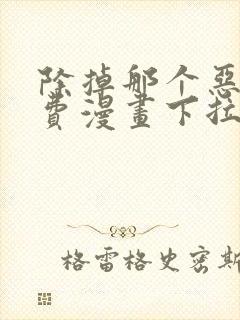 除掉那个惡
費漫畫下拉
格雷格史密斯